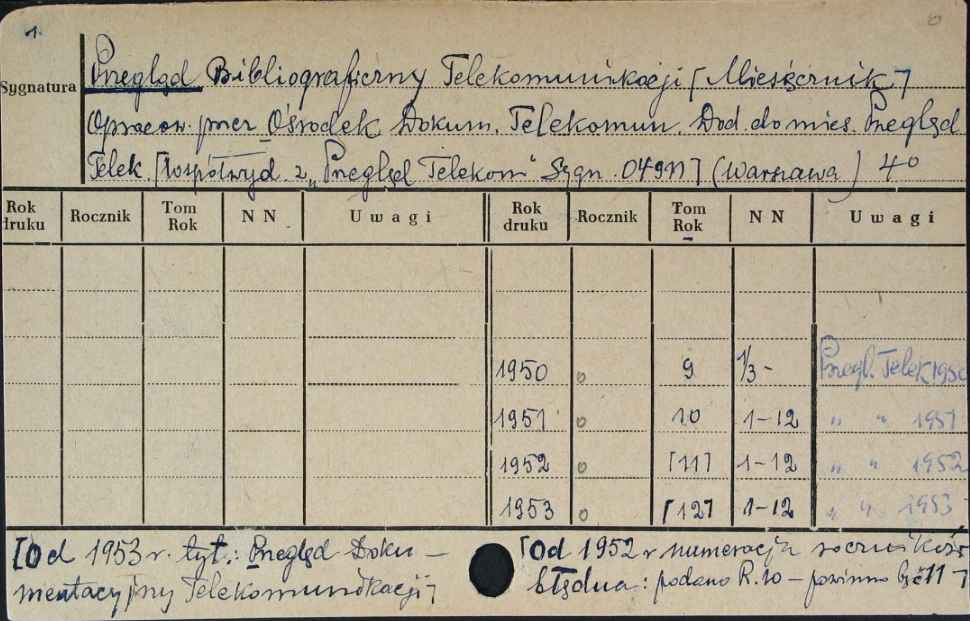 1.
Sygnatura
Przegląd Bibliograficzny Telekomunikacji [Miesięcznik]
Opracow. przez Ośrodek Dokum. Telekomun. Dod. do mies. Przegląd
Telek. [Współwyd. z „Przegląd Telekom” Sygn. 04911] (Warszawa) 4°
Rok druku Rocznik Tom Rok NN Uwagi Rok druku Rocznik Tom Rok NN Uwagi
1950 o 9 1/3 - Przegl. Telek 1950
1951 o 10 1-12 „ „ 1951
1952 o [11] 1-12 „ „ 1952
1953 o [12] 1-12 „ „ 1953
[Od 1953 r. tyt.: Przegląd Doku-
mentacyjny Telekomunikacji]
[Od 1952 r numeracja roczników
błędna: podano R. 10 - powinno być 11]